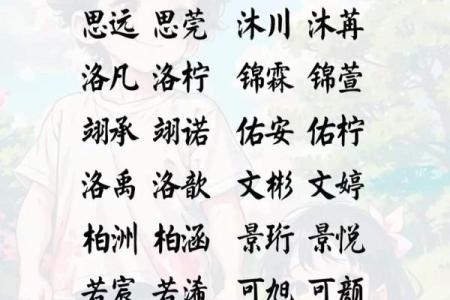 思远 思莞 沐川 沐苒
洛凡 洛柠 锦霖 锦萱
翊承 翊诺 佑安 佑柠
洛禹 洛歆 文彬 文婷
柏洲 柏涵 景珩 景悦
若宸 若浠 可旭 可颜